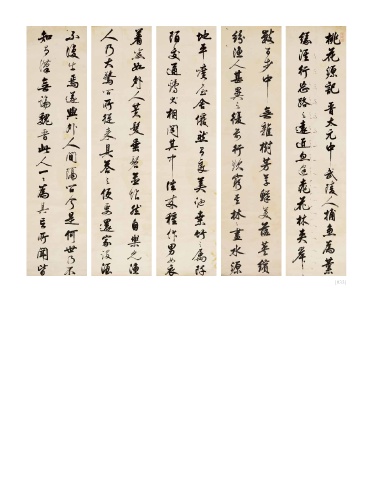 桃花源記 晉太元中武陵人捕魚為業
緣溪行忘路之遠近忽逢桃花林夾岸
數百步中無雜樹芳草鮮美落英繽
紛漁人甚異之復前行欲窮其林盡水源
地平曠屋舍儼然有美池桑竹之屬阡
陌交通雞犬相聞其中往來種作男女衣
著悉如外人黃髮垂髫並怡然自樂見漁
人乃大驚問所從來具答之便要還家設酒
不復出焉遂與外人間隔問今是何世乃不
知有漢無論魏晉此人一一為具言所聞皆